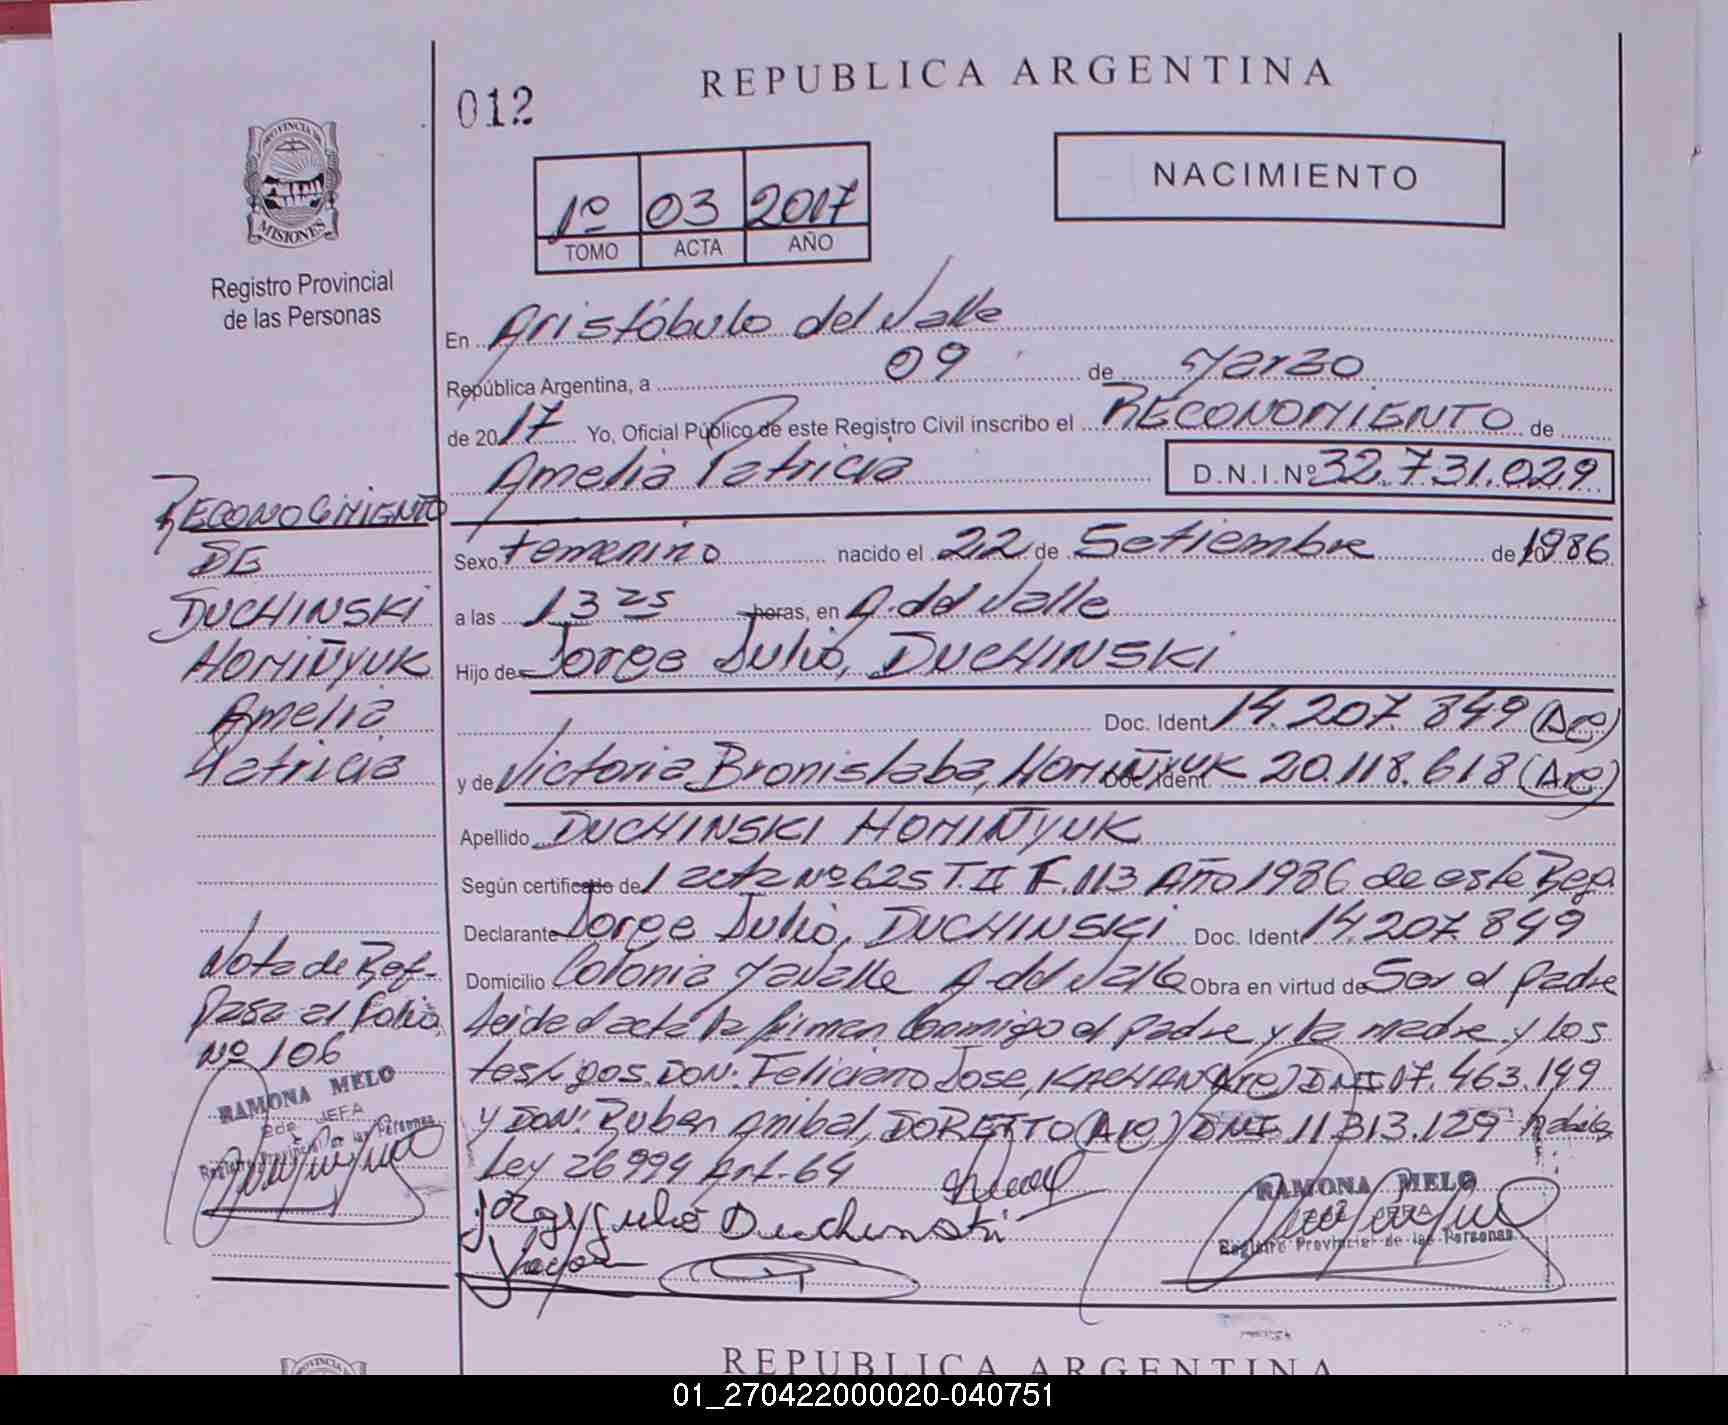 012
REPUBLICA ARGENTINA
PROVINCIA DE
MISIONES
Registro Provincial
de las Personas
1º 03 2017
TOMO ACTA AÑO
NACIMIENTO
En Aristóbulo del Valle
República Argentina, a 09 de Marzo
de 2017 Yo, Oficial Público de este Registro Civil inscribo el RECONOMIENTO de
Amelia Patricia D.N.I.Nº 32.731.029
Sexo femenino nacido el 22 de Setiembre de 1986
a las 13 25 horas, en A. del Valle
Hijo de Jorge Julio, DUCHINSKI
Doc. Ident. 14.207.849 (Arg)
y de Victoria Bronislaba, HOMIÑYUK Doc. Ident. 20.118.618 (Arg)
Apellido DUCHINSKI HOMIÑYUK
Según certificado de l acta Nº 625 T.II F.113 Año 1986 de este Reg.
Declarante Jorge Julio, DUCHINSKI Doc. Ident. 14.207.849
Domicilio Colonia A. del Valle Obra en virtud de Ser el padre
Leida el acta la firman Conmigo el padre y la madre y los
testigos DON: Feliciano Jose, (Arg) DNI 07.463.149
y DON: Ruben Anibal, DORETTO (Arg) DNI 11.313.129
Ley 26994 Art. 64
Jorge Julio Duchinski
RAMONA MELO
2da JEFA
Registro Provincial de las Personas
RECONOCIMIENTO
DE
DUCHINSKI
HOMIÑYUK
Amelia
Patricia
Nota de Ref.
Pasa al Folio
Nº 106
RAMONA MELO
2da JEFA
Registro Provincial de las Personas
REPUBLICA ARGENTINA
01_270422000020-040751